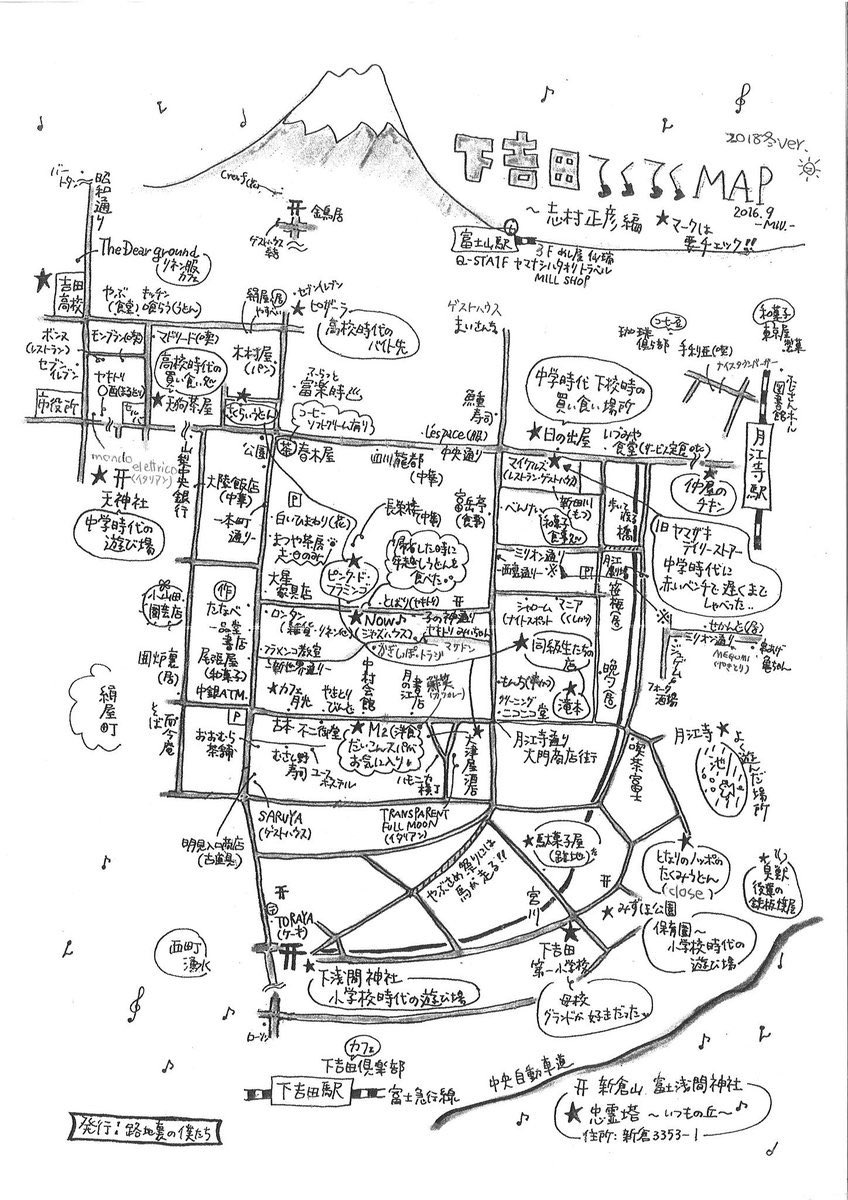 2018冬ver.
下吉田てくてくMAP
2016.9
-MIU.-
~志村正彦編
★マークは
要チェック!!
富士山駅
3F めし屋 仙瑞
Q-STAIF ヤマナシハタオリトラベル
MILL SHOP
金鳥居
昭和通り
The Dear ground
リネン服
カフェ
★
吉田
高校
やぶ
(食堂)
キッチン
喰らう(うどん)
ボンヌ
(レストラン)
モンブラン(喫)
マドリード(喫)
セブン
イレブン
市役所
高校時代の
買い食い処
★天狗茶屋
木村屋
(パン)
セブンイレブン
★ピザーラ
高校時代の
バイト先
ふらっと
富楽時
さくらいうどん
コーヒー
ソフトクリーム有り
公園
茶
春木屋
ゲストハウス
まいさんち
鱒
寿司
Lespace(服)
中央通り
四川龍都
(中華)
中学時代 下校時の
買い食い場所
★日の出屋
いづみや
食堂(サービス定食etc)
マイケルズ
(レストラン・ゲストハウス)
新田川
(もつ)
べんけい
和菓子
食事処
歩いて渡る
橋
コーヒー豆
珈琲
倶楽部
手打ち亜(喫)
ナイスタウンバーサー
和菓子
東京屋
製菓
月江寺駅
★
仲屋の
チキン
旧ヤマザキ
デイリーストアー
中学時代に
赤いベンチで遅くまで
しゃべった..
mondo
elettrico
(イタリアン)
★
天神社
中学時代の
遊び場
山梨中央銀行
大陸飯店
(中華)
一本町
通り
P
白いひまわり(花)
まつや茶房
土・日のみ
大星
家具店
長栄楼(中華)
富岳亭
(食事)
帰省した時に
年越しうどんを
食べた。。
ピンク・ド・
フラミンゴ
とばり(ヤキトリ)
ミリオン通り
西裏通り
月江
劇場
笹梅(居)
小山田
園芸店
作
たなべ
一品堂
書店
尾張屋
(和菓子)
中銀ATM.
囲炉裏
(居)
そば
ロンタン
(雑貨・リネン他)
★Now♪
(ジャズハウス)
子の神通り
ヤキトリ みぃちゃん
かぎしっぽ・トラジ
マクドン
フラメンコ教室
新世界通り
★カフェ
月光
中村会館
月の江
書店
シャローム
(ナイトスポット)
マニア
(くしカツ)
★同級生たちの
店
もんち(串カツ)
滝本
クリーニング
ニコニコ堂
晩々(居)
せかんど(居)
ミリオン通り
MEGUMI
フォーク
酒場
絹屋町
P
おおむら
茶舗
古本 不二御堂
むさし野
寿司
ユース
ホステル
★M2(洋食)
だいこんスパが
お気に入り
ハモニカ
横丁
大津屋
酒店
月江寺通り
大門商店街
喫茶富士
月江寺★よく
遊んだ場所
池
SARUYA
(ゲストハウス)
明見入口商店
(古道具)
TRANSPARENT
FULL MOON
(イタリアン)
やぶさめ祭りには
馬が走る!!
★駄菓子屋
宮川
★
となりのノッポの
たくみうどん
(close)
役場の
鉄板焼屋
TORAYA
(ケーキ)
★
下浅間神社
小学校時代の遊び場
★みずほ公園
保育園~
小学校時代の
遊び場
★
下吉田
第一小学校
と
母校
グランドが好きだった
西町
湧水
ローソン
カフェ
下吉田倶楽部
下吉田駅
富士急行線
中央自動車道
新倉山 富士浅間神社
★忠霊塔 ~いつもの丘~♪
住所:新倉3353-1
発行:路地裏の僕たち